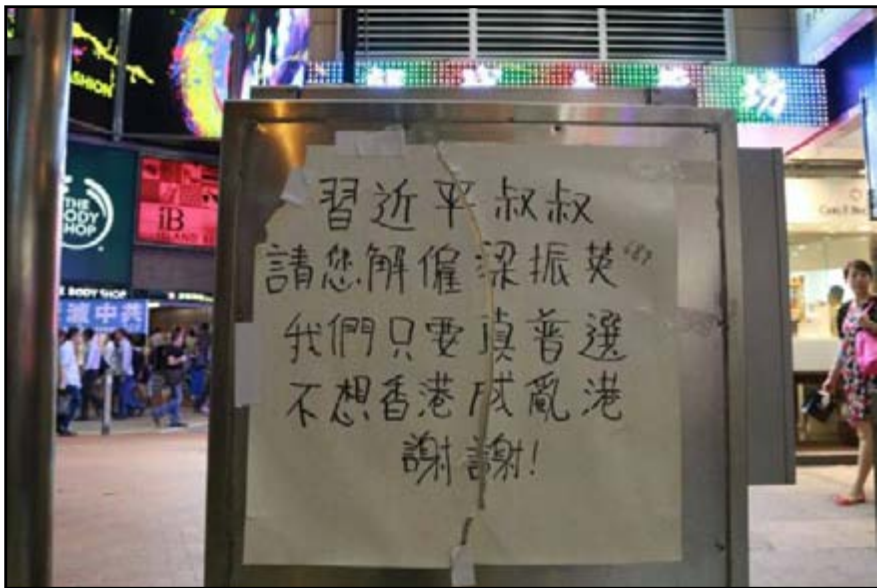 FASHION
坊
THE
BODY
SHOP
iB
THE BODY SHOP
滅中共
習近平叔叔
請您解僱梁振英 689
我們只要真普選
不想香港成亂港
謝謝!